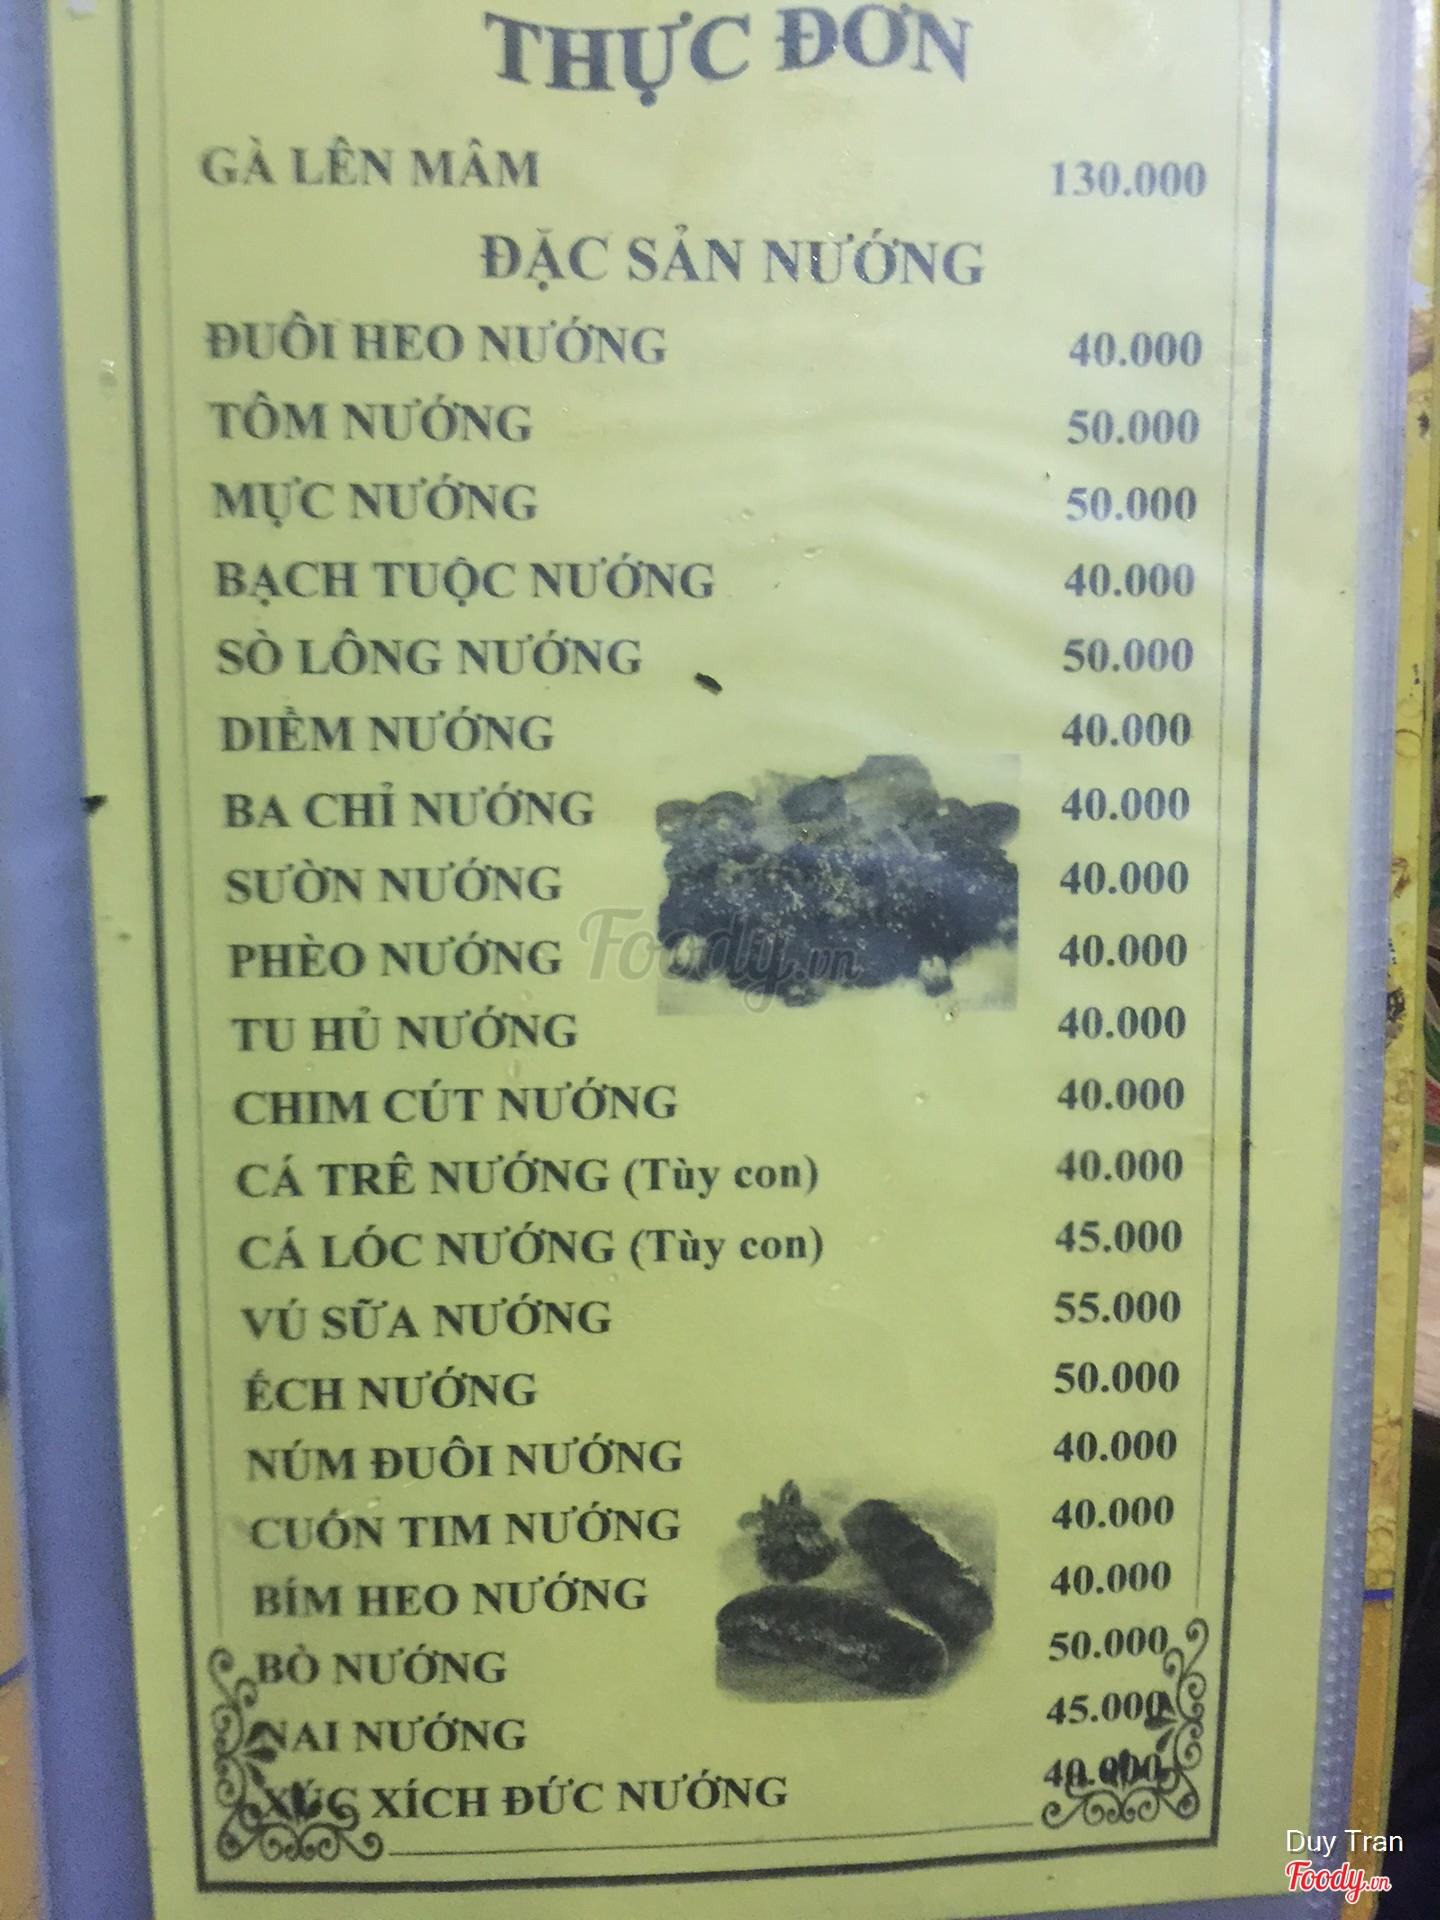 THỰC ĐƠN
GÀ LÊN MÂM 130.000
ĐẶC SẢN NƯỚNG
ĐUÔI HEO NƯỚNG 40.000
TÔM NƯỚNG 50.000
MỰC NƯỚNG 50.000
BẠCH TUỘC NƯỚNG 40.000
SÒ LÔNG NƯỚNG 50.000
DIỀM NƯỚNG 40.000
BA CHỈ NƯỚNG 40.000
SƯỜN NƯỚNG 40.000
PHÈO NƯỚNG 40.000
Foody.vn
TU HỦ NƯỚNG 40.000
CHIM CÚT NƯỚNG 40.000
CÁ TRÊ NƯỚNG (Tùy con) 40.000
CÁ LÓC NƯỚNG (Tùy con) 45.000
VÚ SỮA NƯỚNG 55.000
ẾCH NƯỚNG 50.000
NÚM ĐUÔI NƯỚNG 40.000
CUỐN TIM NƯỚNG 40.000
BÍM HEO NƯỚNG 40.000
BÒ NƯỚNG 50.000
NAI NƯỚNG 45.000
XÚC XÍCH ĐỨC NƯỚNG 40.000
Duy Tran
Foody.vn